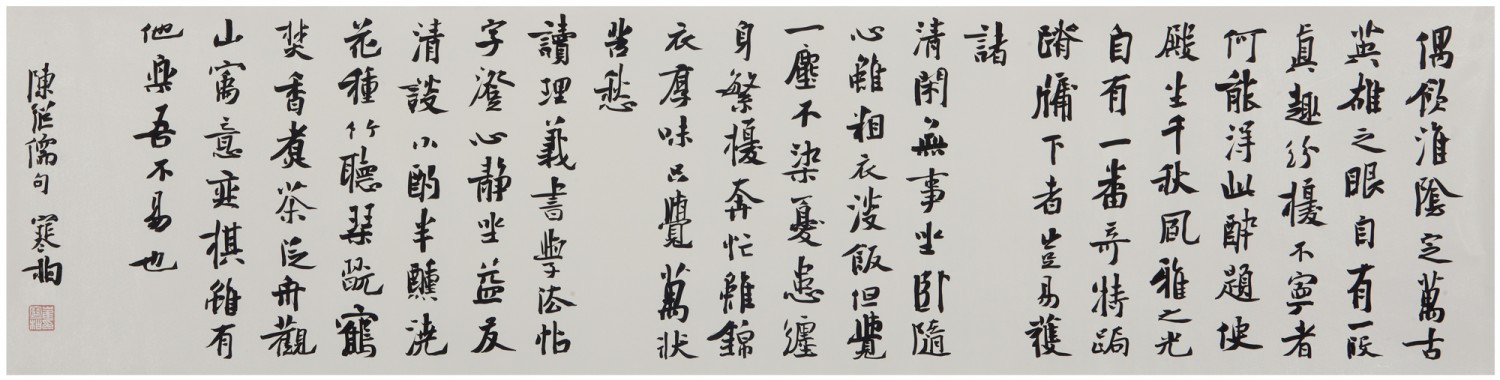 偶飲淮陰定萬古
英雄之眼自有一段
真趣紛擾不寧者
何能得此醉題便
殿坐千秋風雅之光
自有一番奇特跼
蹐牖下者豈易獲
諸
清閑無事坐卧隨
心雖粗衣淡飯但覺
一塵不染憂患纏
身繁擾奔忙雖錦
衣厚味只覺萬狀
苦愁
讀理義書學法帖
字澄心靜坐益友
清談小酌半醺澆
花種竹聽琴玩鶴
焚香煮茶泛舟觀
山寓意弈棋雖有
他樂吾不易也
陳繼儒句 寒柏